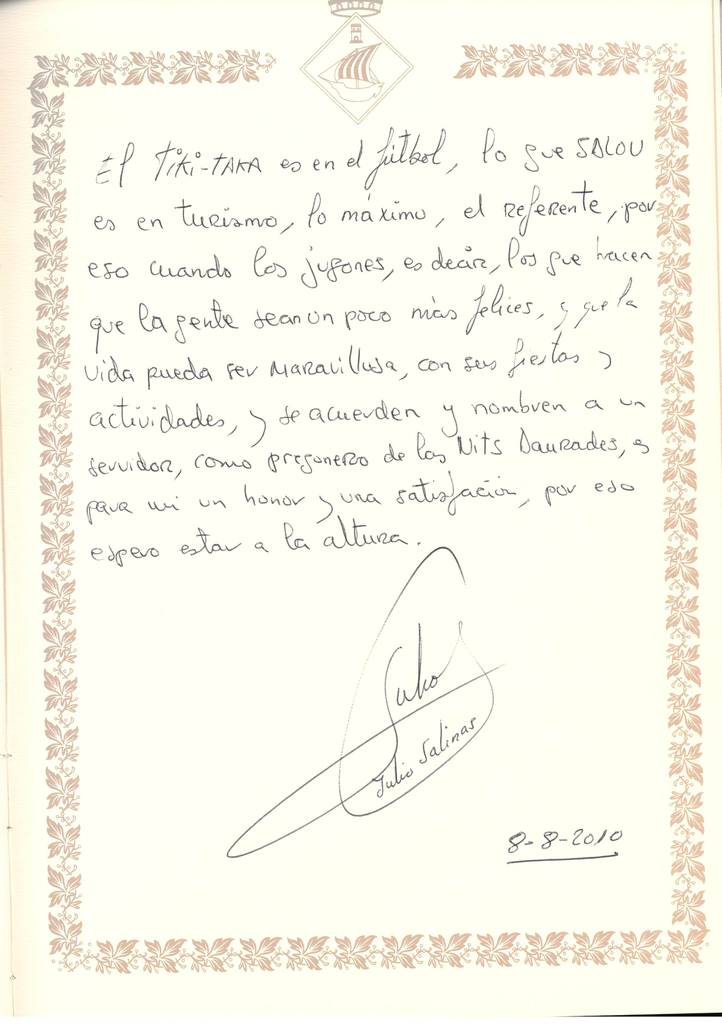 El TIKI-TAKA es en el fútbol, lo que SALOU
es en turismo, lo máximo, el referente, por
eso cuando los jugones, es decir, los que hacen
que la gente sean un poco más felices, y que la
vida pueda ser maravillosa, con sus fiestas y
actividades, y se acuerden y nombren a un
servidor, como pregonero de las Nits Daurades, es
para mi un honor y una satisfación, por eso
espero estar a la altura.
Julio
Julio Salinas
8-8-2010